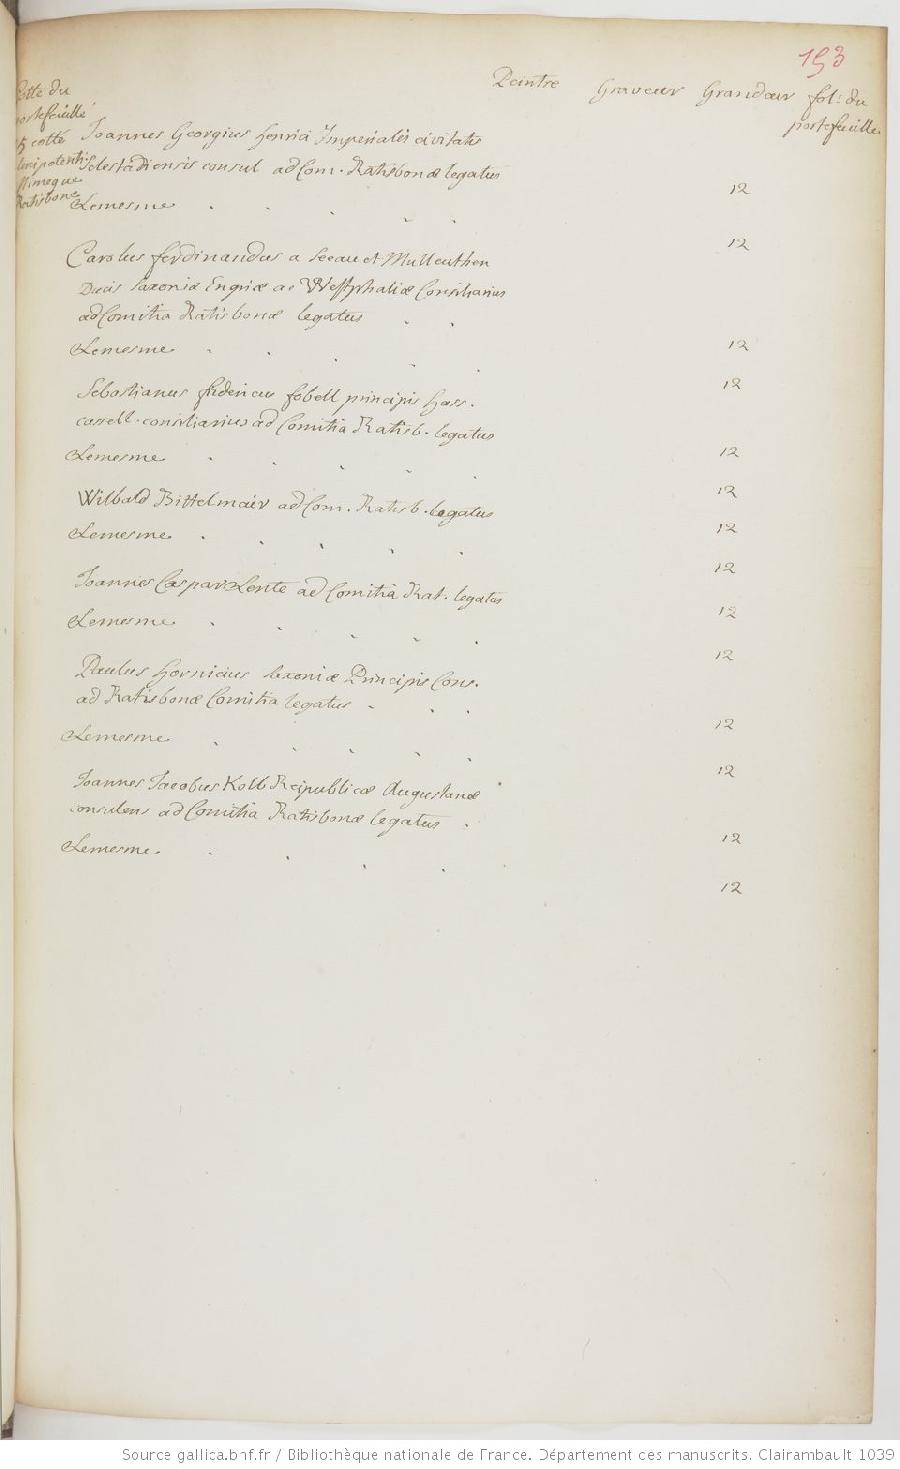 193
Peintre Graveur Grandeur fol: du portefeuille
Cotte du
portefeuille
15 cotté
plenipotenti
Nimegue
Ratisbone
Joannes Georgius Henrici Imperialis civitatis
Selestadiensis consul ad Com. Ratisbonæ legatus 12
Lemesme 12
Carolus ferdinandus a Seeau et Mulleuthen
Ducis Saxoniæ Engriæ ac Westphaliæ Consiliarius
ad Comitia Ratisbonæ legatus 12
Lemesme 12
Sebastianus fridericus fobell principis Hass.
cassell. consiliarius ad Comitia Ratisb. legatus 12
Lemesme 12
Wilbald Bittelmair ad Com. Ratisb. legatus 12
Lemesme 12
Joannes Caspar Lente ad Comitia Rat. legatus 12
Lemesme 12
Paulus Hornicius Saxoniæ Principis Cons.
ad Ratisbonæ Comitia legatus 12
Lemesme 12
Joannes Jacobus Kolb Reipublicæ Augustanæ
consulens ad Comitia Ratisbonæ legatus 12
Lemesme 12
Source gallica.bnf.fr / Bibliothèque nationale de France. Département des manuscrits. Clairambault 1039